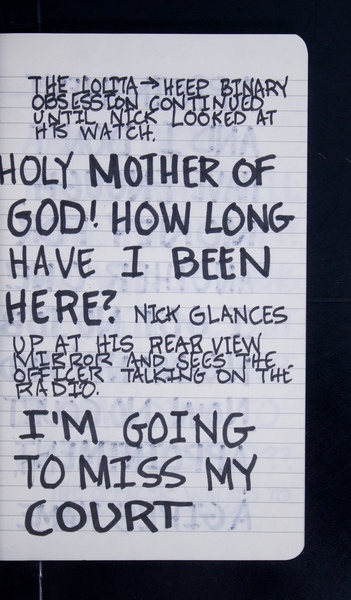 THE LOLITA → HEEP BINARY
OBSESSION CONTINUED
UNTIL NICK LOOKED AT
HIS WATCH.
HOLY MOTHER OF
GOD! HOW LONG
HAVE I BEEN
HERE? NICK GLANCES
UP AT HIS REAR VIEW
MIRROR AND SEES THE
OFFICER TALKING ON THE
RADIO.
I'M GOING
TO MISS MY
COURT